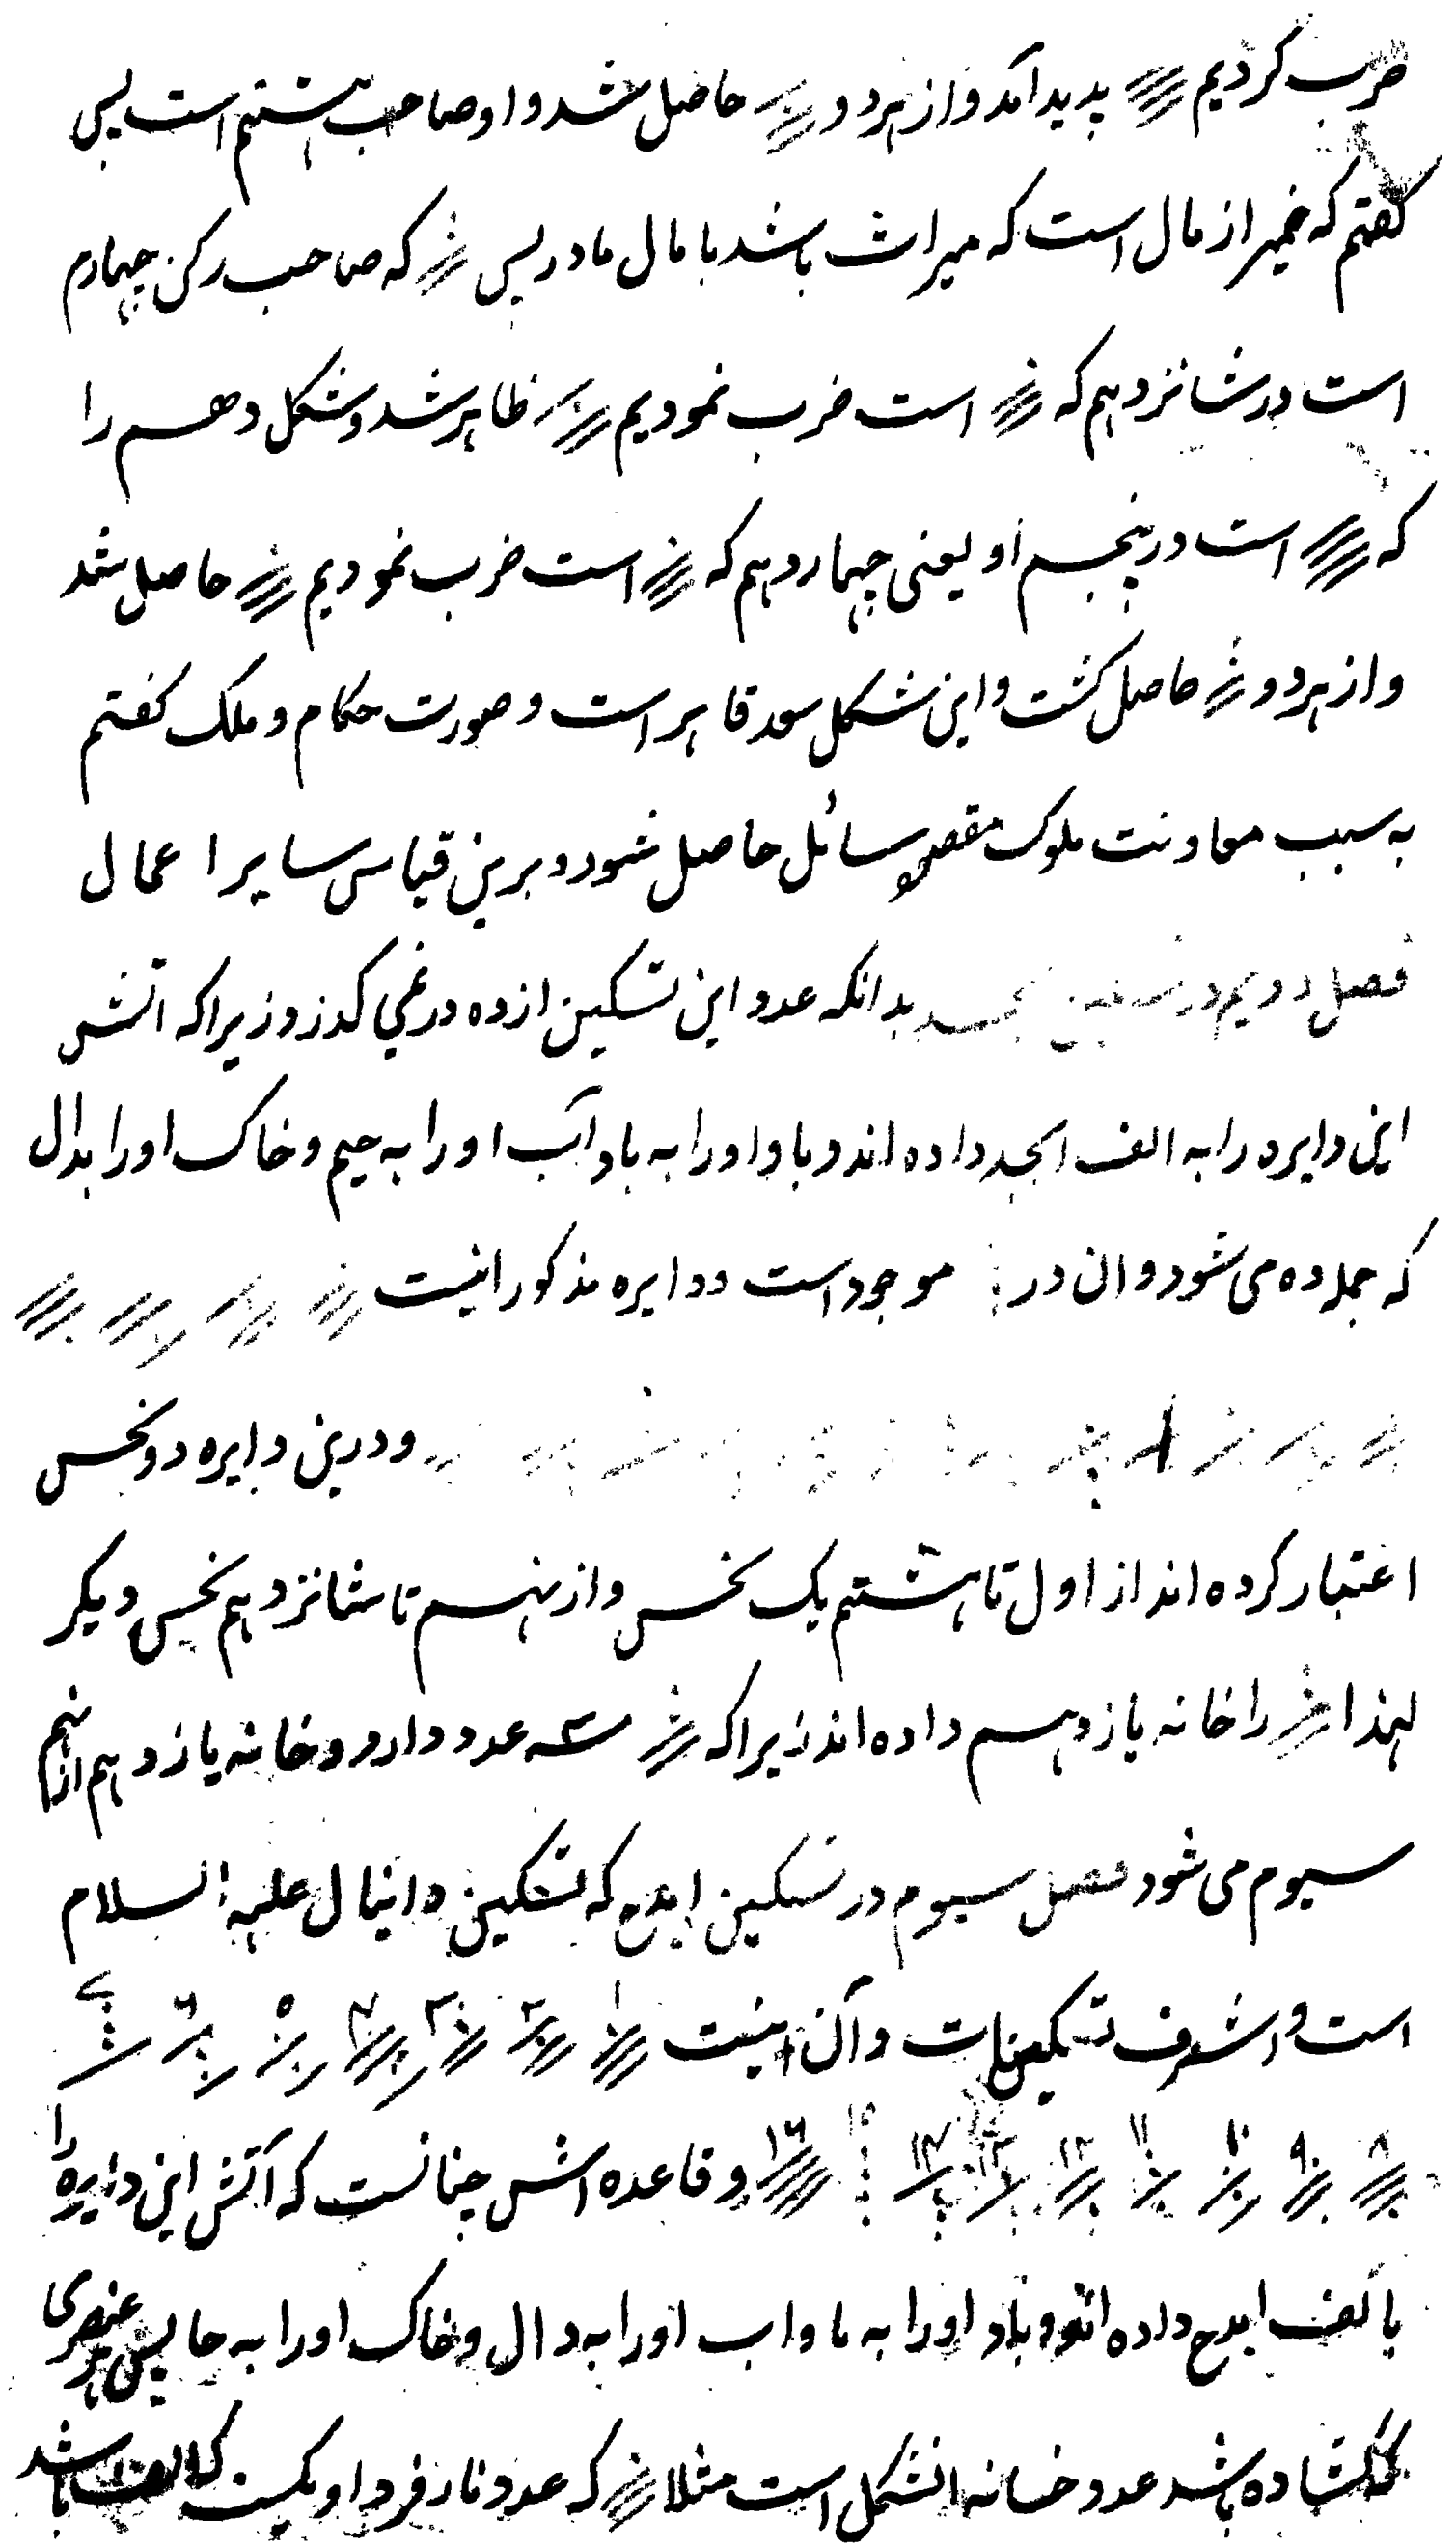 ضرب کردیم پدید آمد و از هر دو حاصل شد و او صاحب هشتم است پس
کفتم که ضمیر از مال است که میراث باشد با مال مادر پس که صاحب رکن چهارم
است در شانزدهم که است ضرب نمودیم ظاهر شد و شکل دهم را
که است در پنجم او یعنی چهاردهم که است ضرب نمودیم حاصل شد
و از هر دو حاصل کشت و این شکل سعد قاهر است و صورت حکام و ملک کفتم
به سبب معاونت ملوک مقصود سائل حاصل شود و برین قیاس سایر اعمال
فصل دویم در بدانکه عدد این تسکین از ده در نمی کذرد زیرا که اتش
این دایره را به الف ابجد داده اند و باد او را به با و آب او را به جیم و خاک او را بدال
که جمله ده می شود و ان در موجود است و دایره مذکور اینست
و درین دایره دو نحس
اعتبار کرده اند از اول تا هشتم یک نحس و از نهم تا شانزدهم نحس دیکر
لهذا را خانه یازدهم داده اند زیرا که سه عدد دارد و خانه یازدهم از نهم
سیوم می شود فصل سیوم در تسکین ابدح که تسکین دانیال علیه السلام
است و اشرف تسکینات و آن اینست ۱ ۲ ۳ ۴ ۵ ۶ ۷
۸ ۹ ۱۰ ۱۱ ۱۲ ۱۳ ۱۴ ۱۵ ۱۶ و قاعده اش چنانست که آتش این دایره را
با لف ابدح داده اند و باد او را به با و اب او را به دال و خاک او را به حا پس هر عنصری
که کشاده باشد عدد خانه انشکل است مثلا که عدد نار فرد او یکست که الف باشد